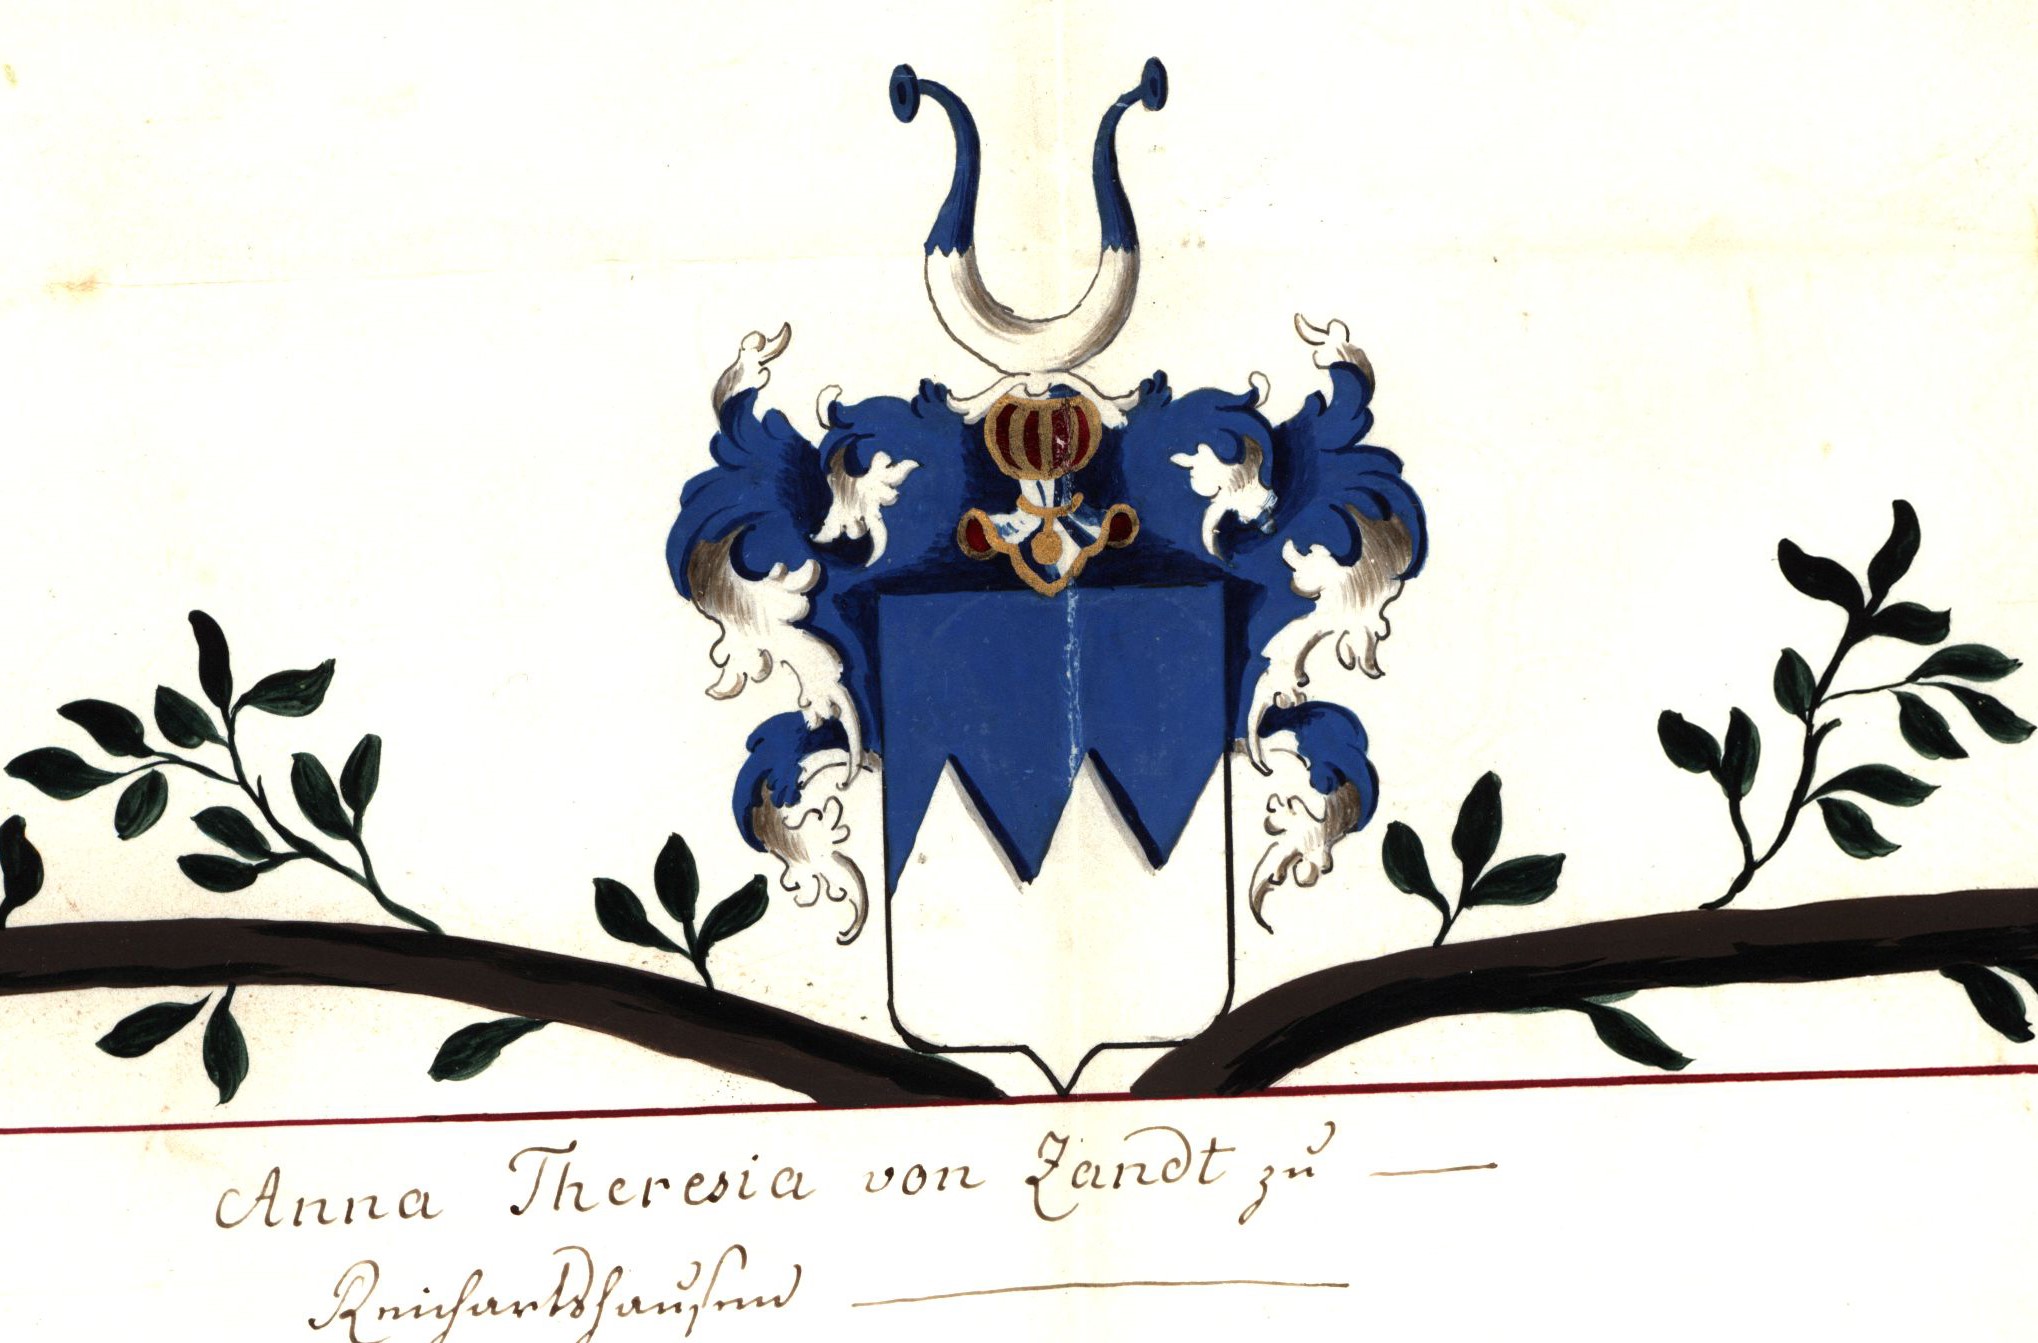 Anna Theresia von Zandt zu —
Reichartshausen —